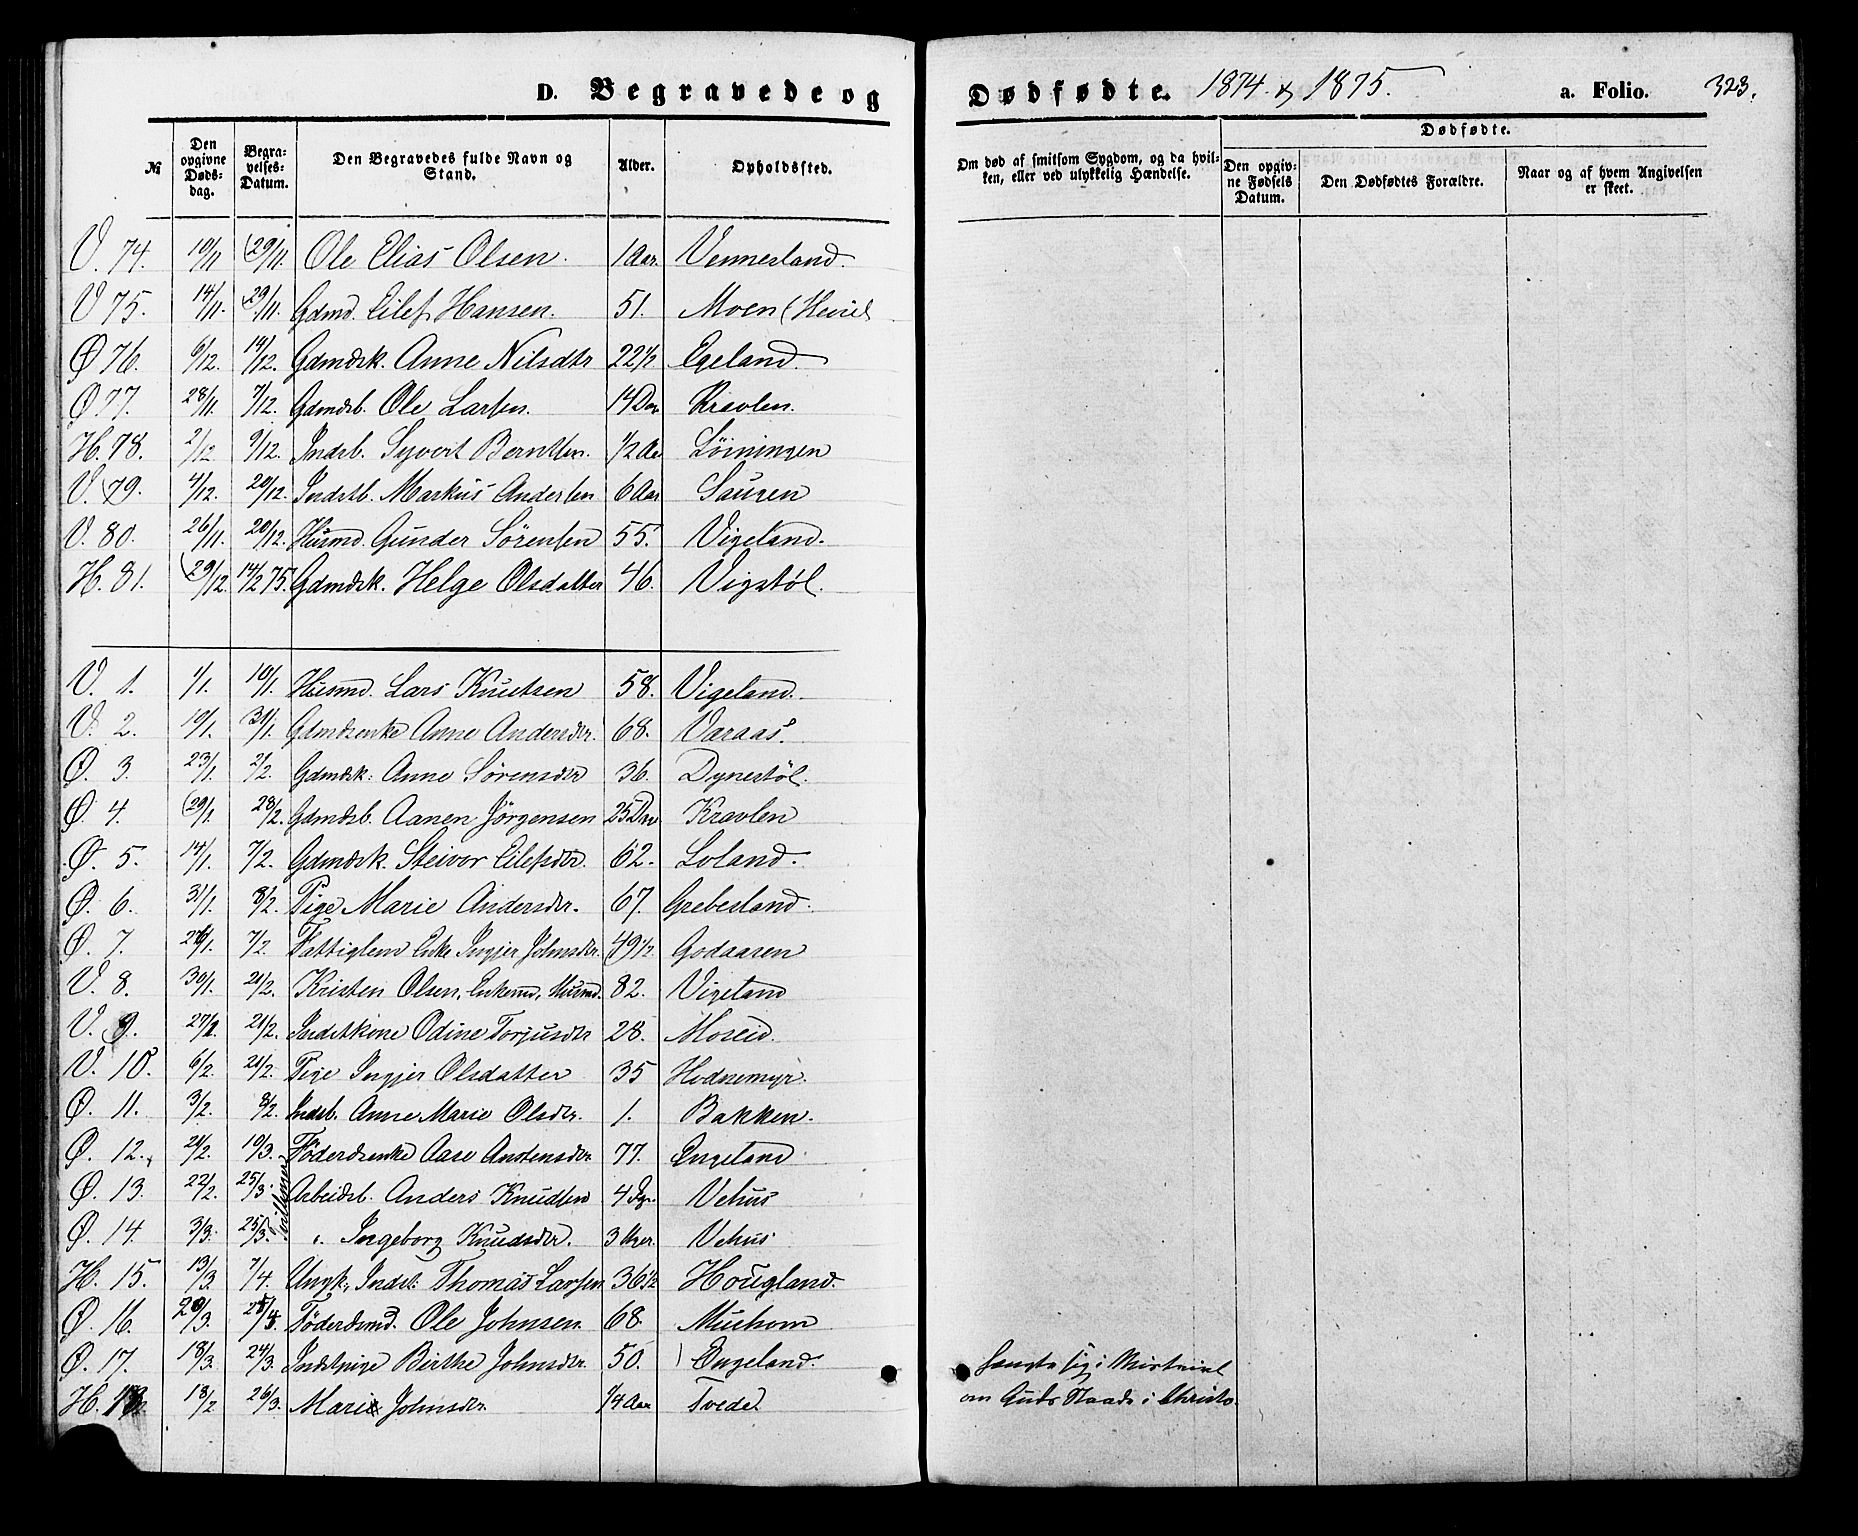 D. Begravede og Dødfødte. 1874 & 1875. a. Folio. 323.
№ Den opgivne Dødsdag. Begravelses-Datum. Den Begravedes fulde Navn og Stand. Alder. Opholdssted.
Om død af smitsom Sygdom, og da hvilken, eller ved ulykkelig Hændelse. Dødfødte. Den opgivne Fødsels Datum. Den Dødfødtes Forældre. Naar og af hvem Angivelsen er skeet.
V. 74. 10/11 29/11. Ole Elias Olsen. 1 Aar. Vennesland.
V 75. 14/11. 29/11. Gdmd. Eilef Hansen. 51. Moen
Ø 76. 6/12. 14/12. Gdmdsk. Anne Nilsdtr 22 1/2 Egeland.
Ø 77. 28/11. 7/12. Gdmdsb. Ole Larsen. 14 Dar Kravlen.
H. 78. 2/12 9/12. Indsb. Syvert Berntsen. 1/2 Aar Løiningen
V. 79. 4/12. 20/12. Indstb. Markus Andersen 6 Aar Saugen
V. 80. 26/11. 20/12. Husmd. Gunder Sørensen 55. Vigeland.
H. 81. 29/12. 14/2 75. Gdmdsk. Helge Olsdatter 46. Vigstøl.
V. 1. 1/1. 10/1. Husmd. Lars Knutsen 58. Vigeland.
V. 2. 10/1. 31/1. Gdmdsenke Anne Andersdtr. 68. Varaas.
Ø. 3. 23/1. 2/2. Gdmdsk. Anne Sørensdtr 36. Dynestøl.
Ø. 4. 29/1. 28/2. Gdmdsb. Aanen Jörgensen 25 Dar Kravlen
Ø. 5. 14/1. 7/2. Gdmdsk. Steivor Eilefsdtr. 62. Loland.
Ø. 6. 31/1. 8/2. Pige Marie Andersdtr. 67. Grebesland.
Ø. 7. 26/1. 7/2. Fattiglem Enke Ingjer Johnsdtr. 49 1/2. Godaasen
V. 8. 30/1. 21/2. Kristen Olsen, Enkemd, Husmd. 82. Vigeland
V. 9. 27/1. 21/2. Indstkone Odine Torjusdtr 28. Moseid.
V. 10. 6/2. 21/2. Pige Ingjer Olsdatter 35 Hodnemyr.
Ø. 11. 3/2. 8/2. Indsb. Anne Marie Olsdtr. 1. Bakken.
Ø. 12. 21/2. 10/3. Föderdsenke Aase Anstensdtr. 77. Engeland
Ø. 13. 22/2. 25/3. Arbeidsb. Anders Knudsen 4 Vehus
Ø. 14. 3/3. 25/3. Ingeborg Knudsdtr. 3 Uger. Vehus
H. 15. 13/3. 7/4. Ungk., Indst. Thomas Larsen 36 1/2 Hougland.
Ø. 16. 29/3. 25/4. Föderdsmd. Ole Johnsen. 68. Mushom
Ø. 17. 18/3. 24/3. Indstpige Birthe Johnsdtr. 50. Engeland. Hængte sig i Mistvivl
H. 18. 18/2. 26/3. Marie Johnsdtr. 1/4 Aar Tvedt om Guds Naade i Christo.